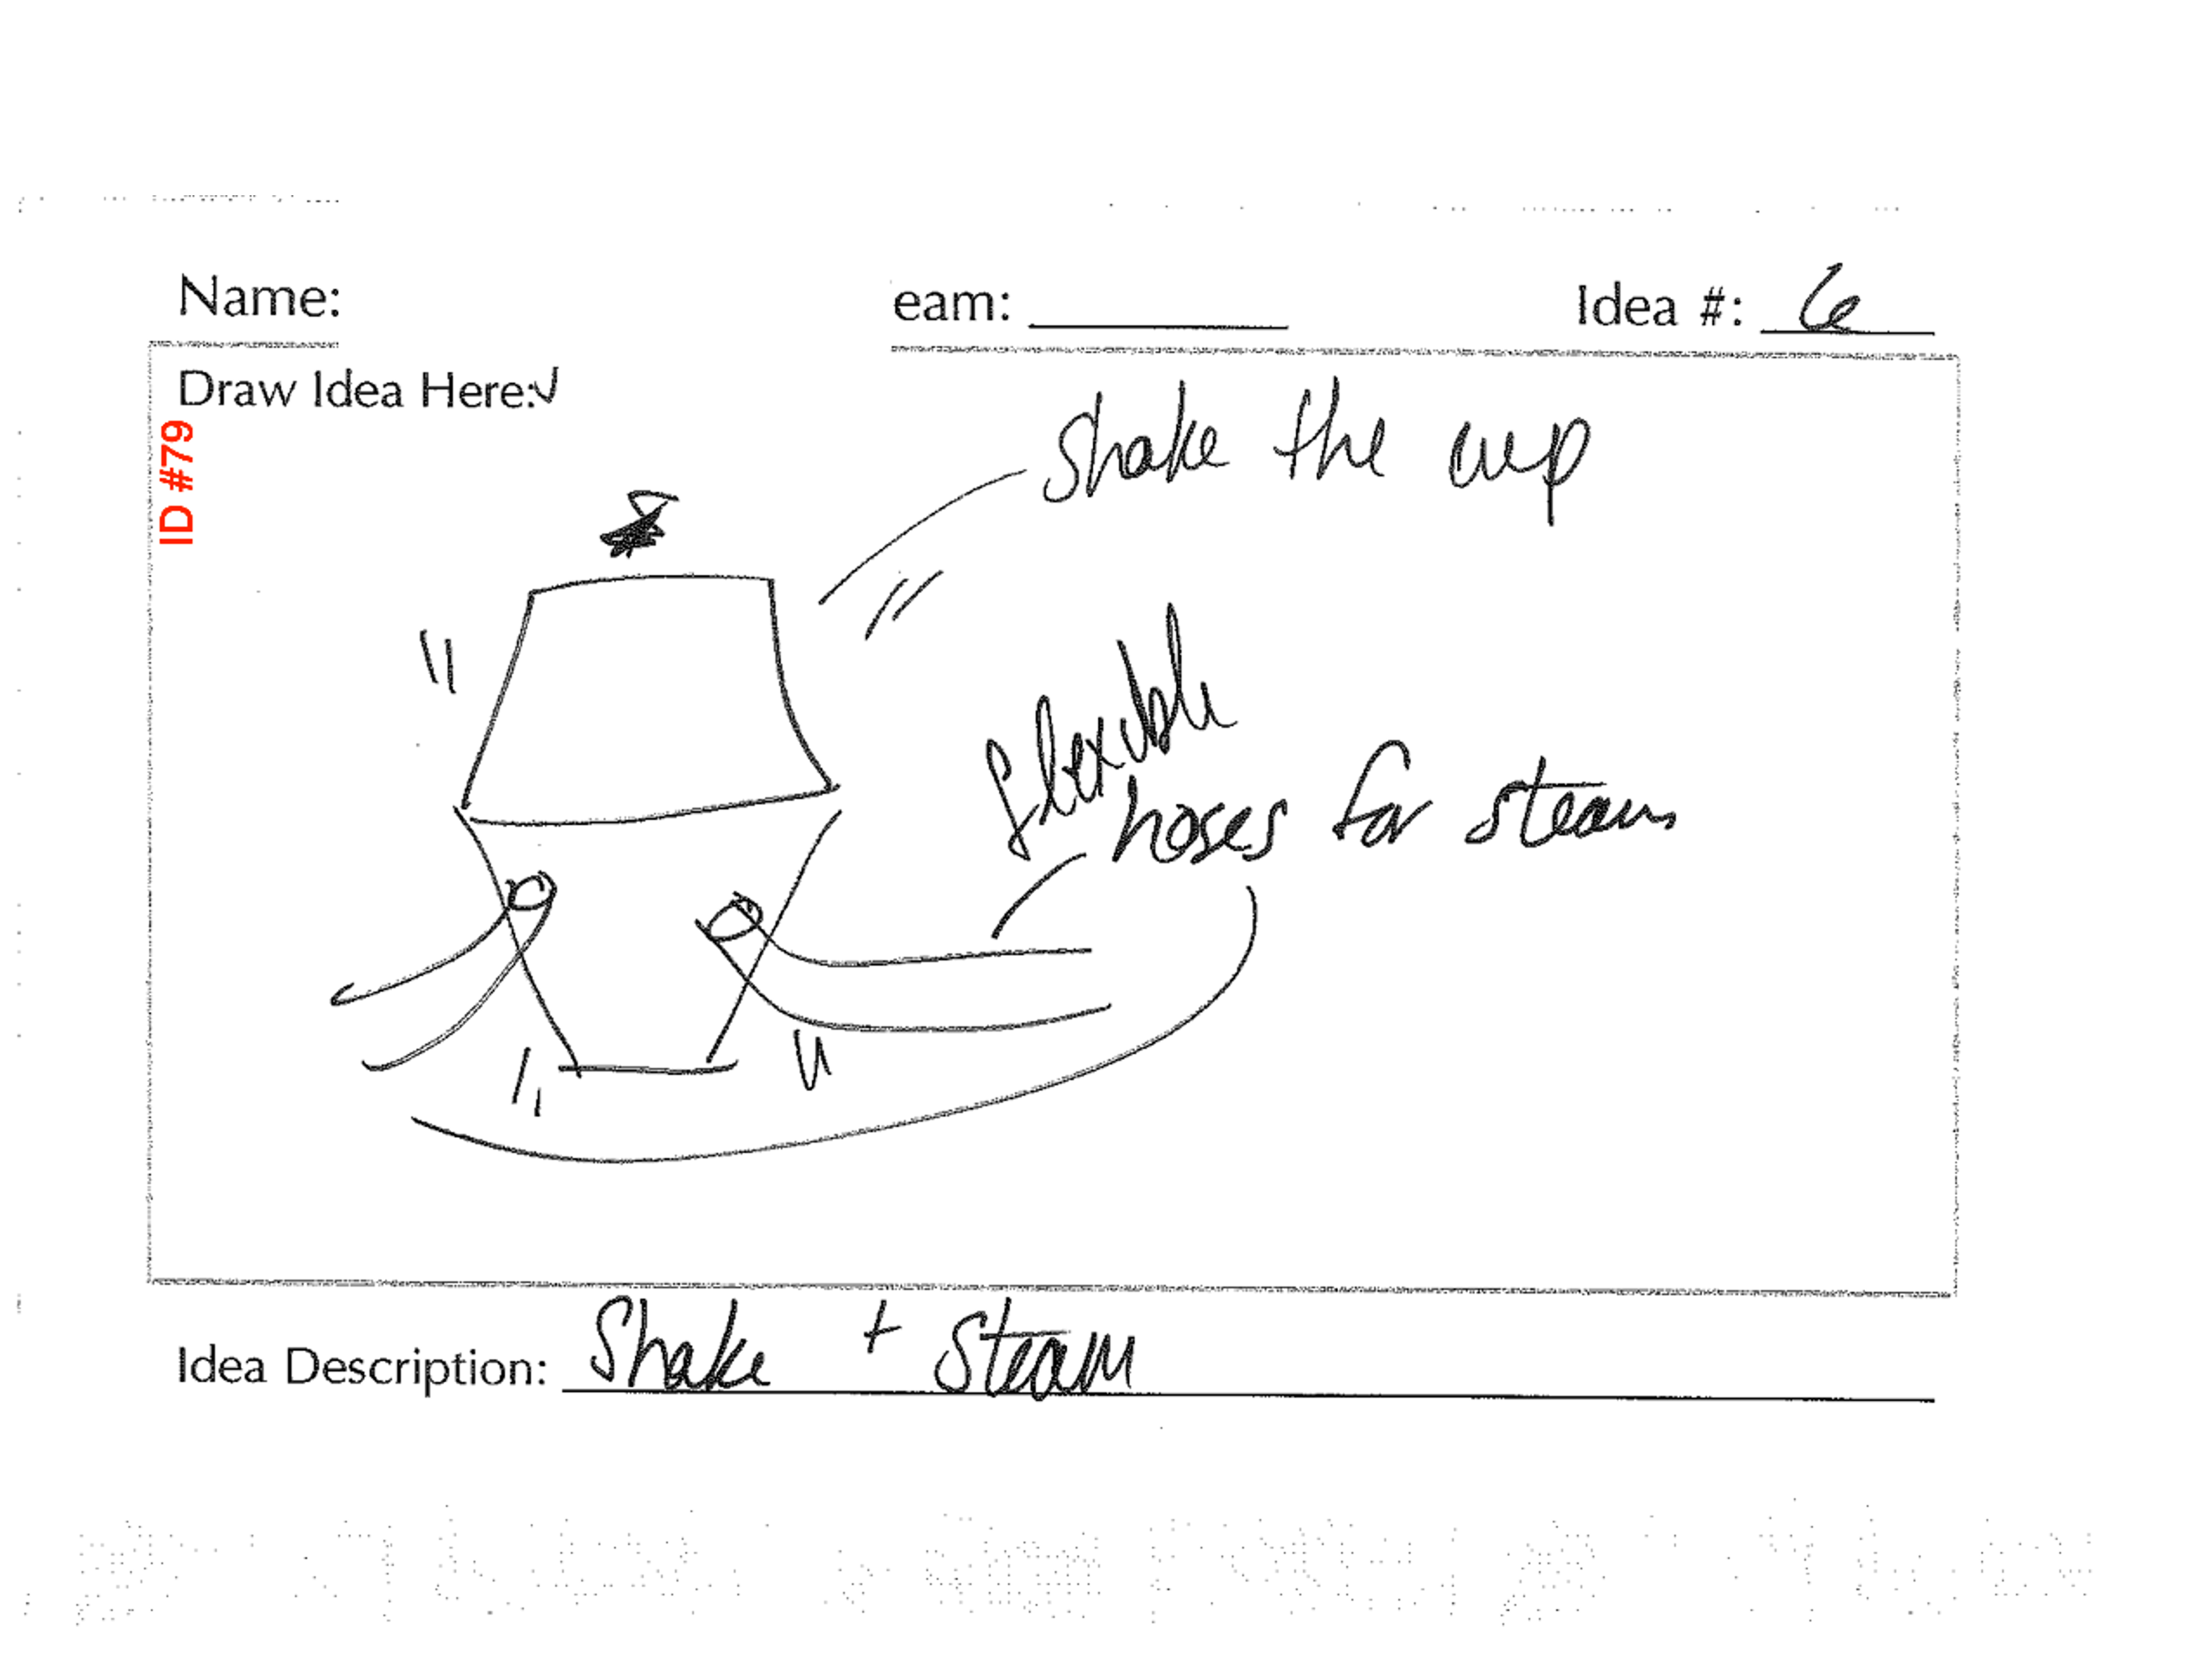 Name: eam: Idea #: 6
Draw Idea Here:
ID #79
Shake the cup
flexible
hoses for steam
Idea Description: Shake + Steam